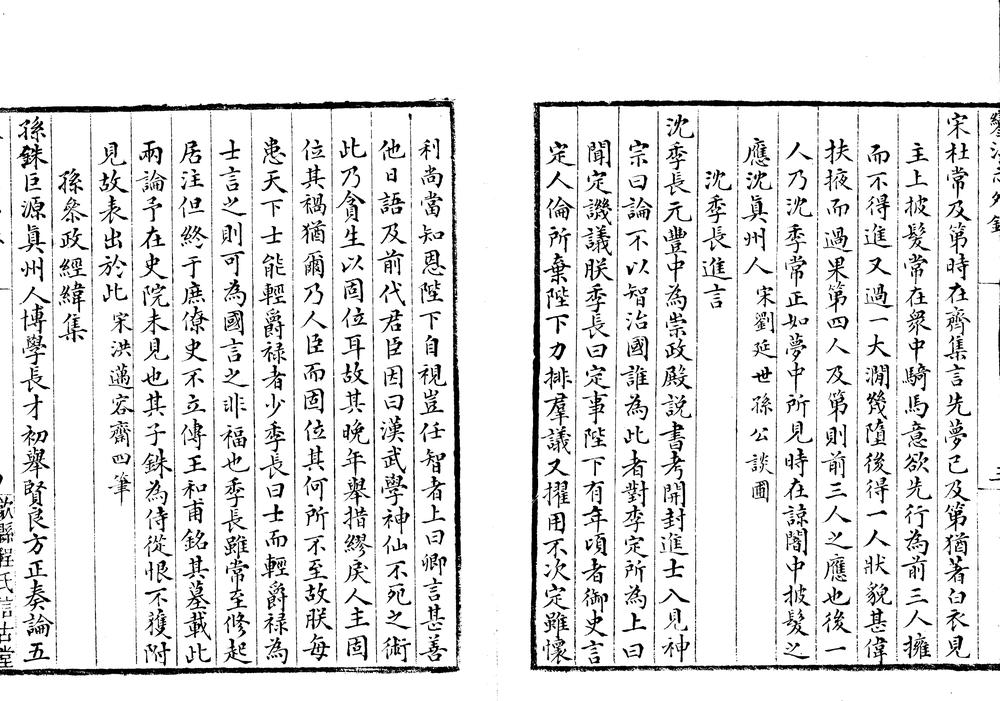 宋杜常及第時在齊集言先夢已及第猶著白衣見
主上披髮常在衆中騎馬意欲先行為前三人擁
而不得進又過一大澗幾墮後得一人狀貌甚偉
扶掖而過果第四人及第則前三人之應也後一
人乃沈季常正如夢中所見時在諒闇中披髮之
應沈眞州人 宋劉延世孫公談圃
沈季長進言
沈季長元豐中為崇政殿説書考開封進士入見神
宗曰論不以智治國誰為此者對李定所為上曰
聞定譏議朕季長曰定事陛下有年頃者御史言
定人倫所棄陛下力排羣議又擢用不次定雖懷
利尚當知恩陛下自視豈任智者上曰卿言甚善
他日語及前代君臣因曰漢武學神仙不死之術
此乃貪生以固位耳故其晚年舉措繆戾人主固
位其禍猶爾乃人臣而固位其何所不至故朕每
患天下士能輕爵禄者少季長曰士而輕爵禄為
士言之則可為國言之非福也季長雖常至修起
居注但終于庶僚史不立傳王和甫銘其墓載此
兩論予在史院未見也其子銖為侍從恨不獲附
見故表出於此 宋洪邁容齋四筆
孫叅政經緯集
孫銖巨源眞州人博學長才初舉賢良方正奏論五
歙縣程氏信古堂